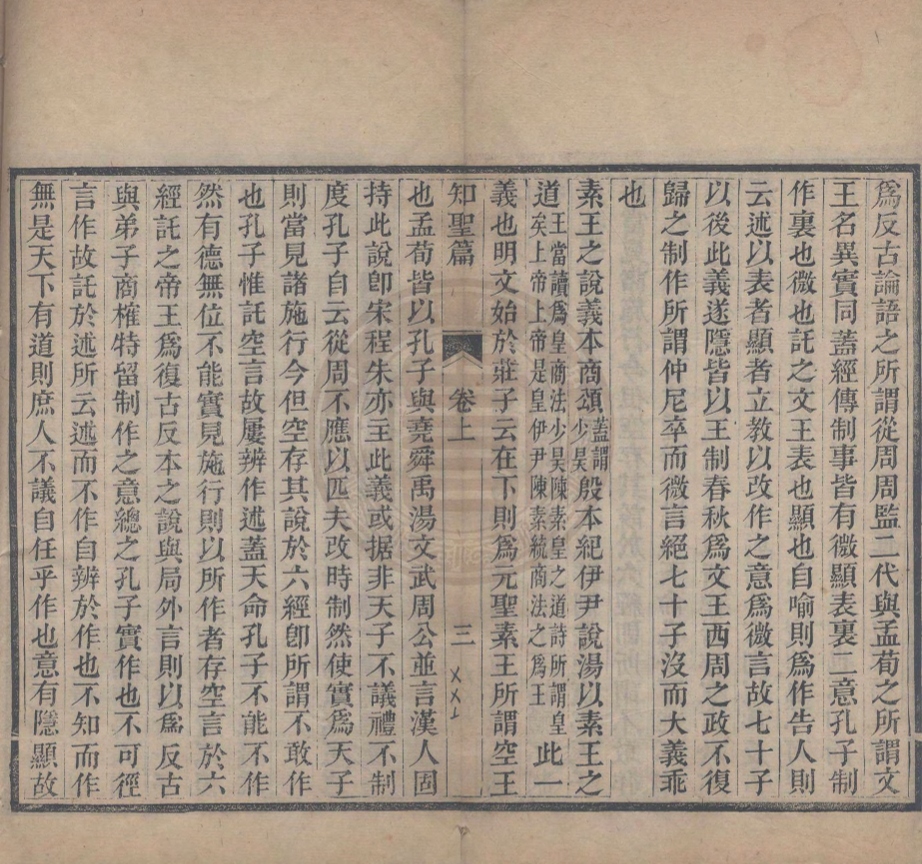 爲反古論語之所謂從周周監二代與孟荀之所謂文
王名異實同蓋經傳制事皆有微顯表裏二意孔子制
作裏也微也託之文王表也顯也自喻則爲作告人則
云述以表者顯者立教以改作之意爲微言故七十子
以後此義遂隱皆以王制春秋爲文王西周之政不復
歸之制作所謂仲尼卒而微言絕七十子沒而大義乖
也
素王之說義本商頌蓋謂少昊殷本紀伊尹說湯以素王之
道王當讀爲皇商法少昊陳素皇之道詩所謂皇矣上帝上帝是皇伊尹陳素統商法之爲王此一
義也明文始於莊子云在下則爲元聖素王所謂空王
知聖篇 卷上 三
也孟荀皆以孔子與堯舜禹湯文武周公並言漢人固
持此說卽宋程朱亦主此義或据非天子不議禮不制
度孔子自云從周不應以匹夫改時制然使實爲天子
則當見諸施行今但空存其說於六經卽所謂不敢作
也孔子惟託空言故屢辨作述蓋天命孔子不能不作
然有德無位不能實見施行則以所作者存空言於六
經託之帝王爲復古反本之說與局外言則以爲反古
與弟子商榷特留制作之意總之孔子實作也不可徑
言作故託於述所云述而不作自辨於作也不知而作
無是天下有道則庶人不議自任乎作也意有隱顯故